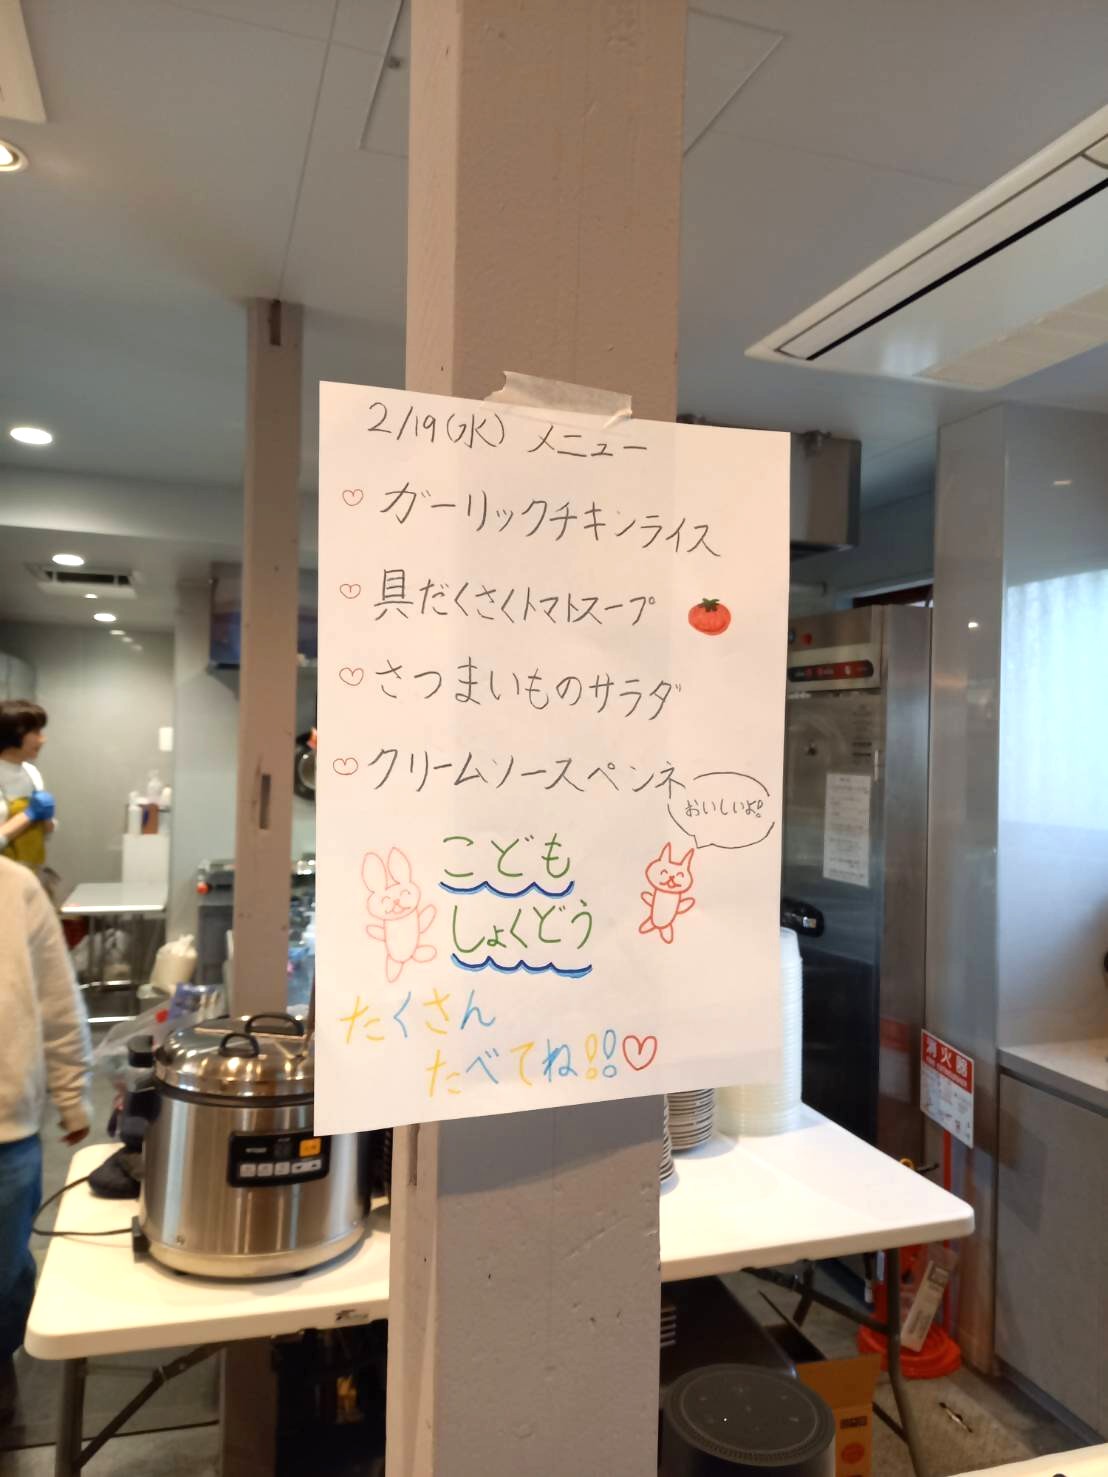 2/19(水) メニュー
ガーリックチキンライス
具だくさくトマトスープ
さつまいものサラダ
クリームソースペンネ
おいしいよ!
こども
しょくどう
たくさん
たべてね!!
消火器